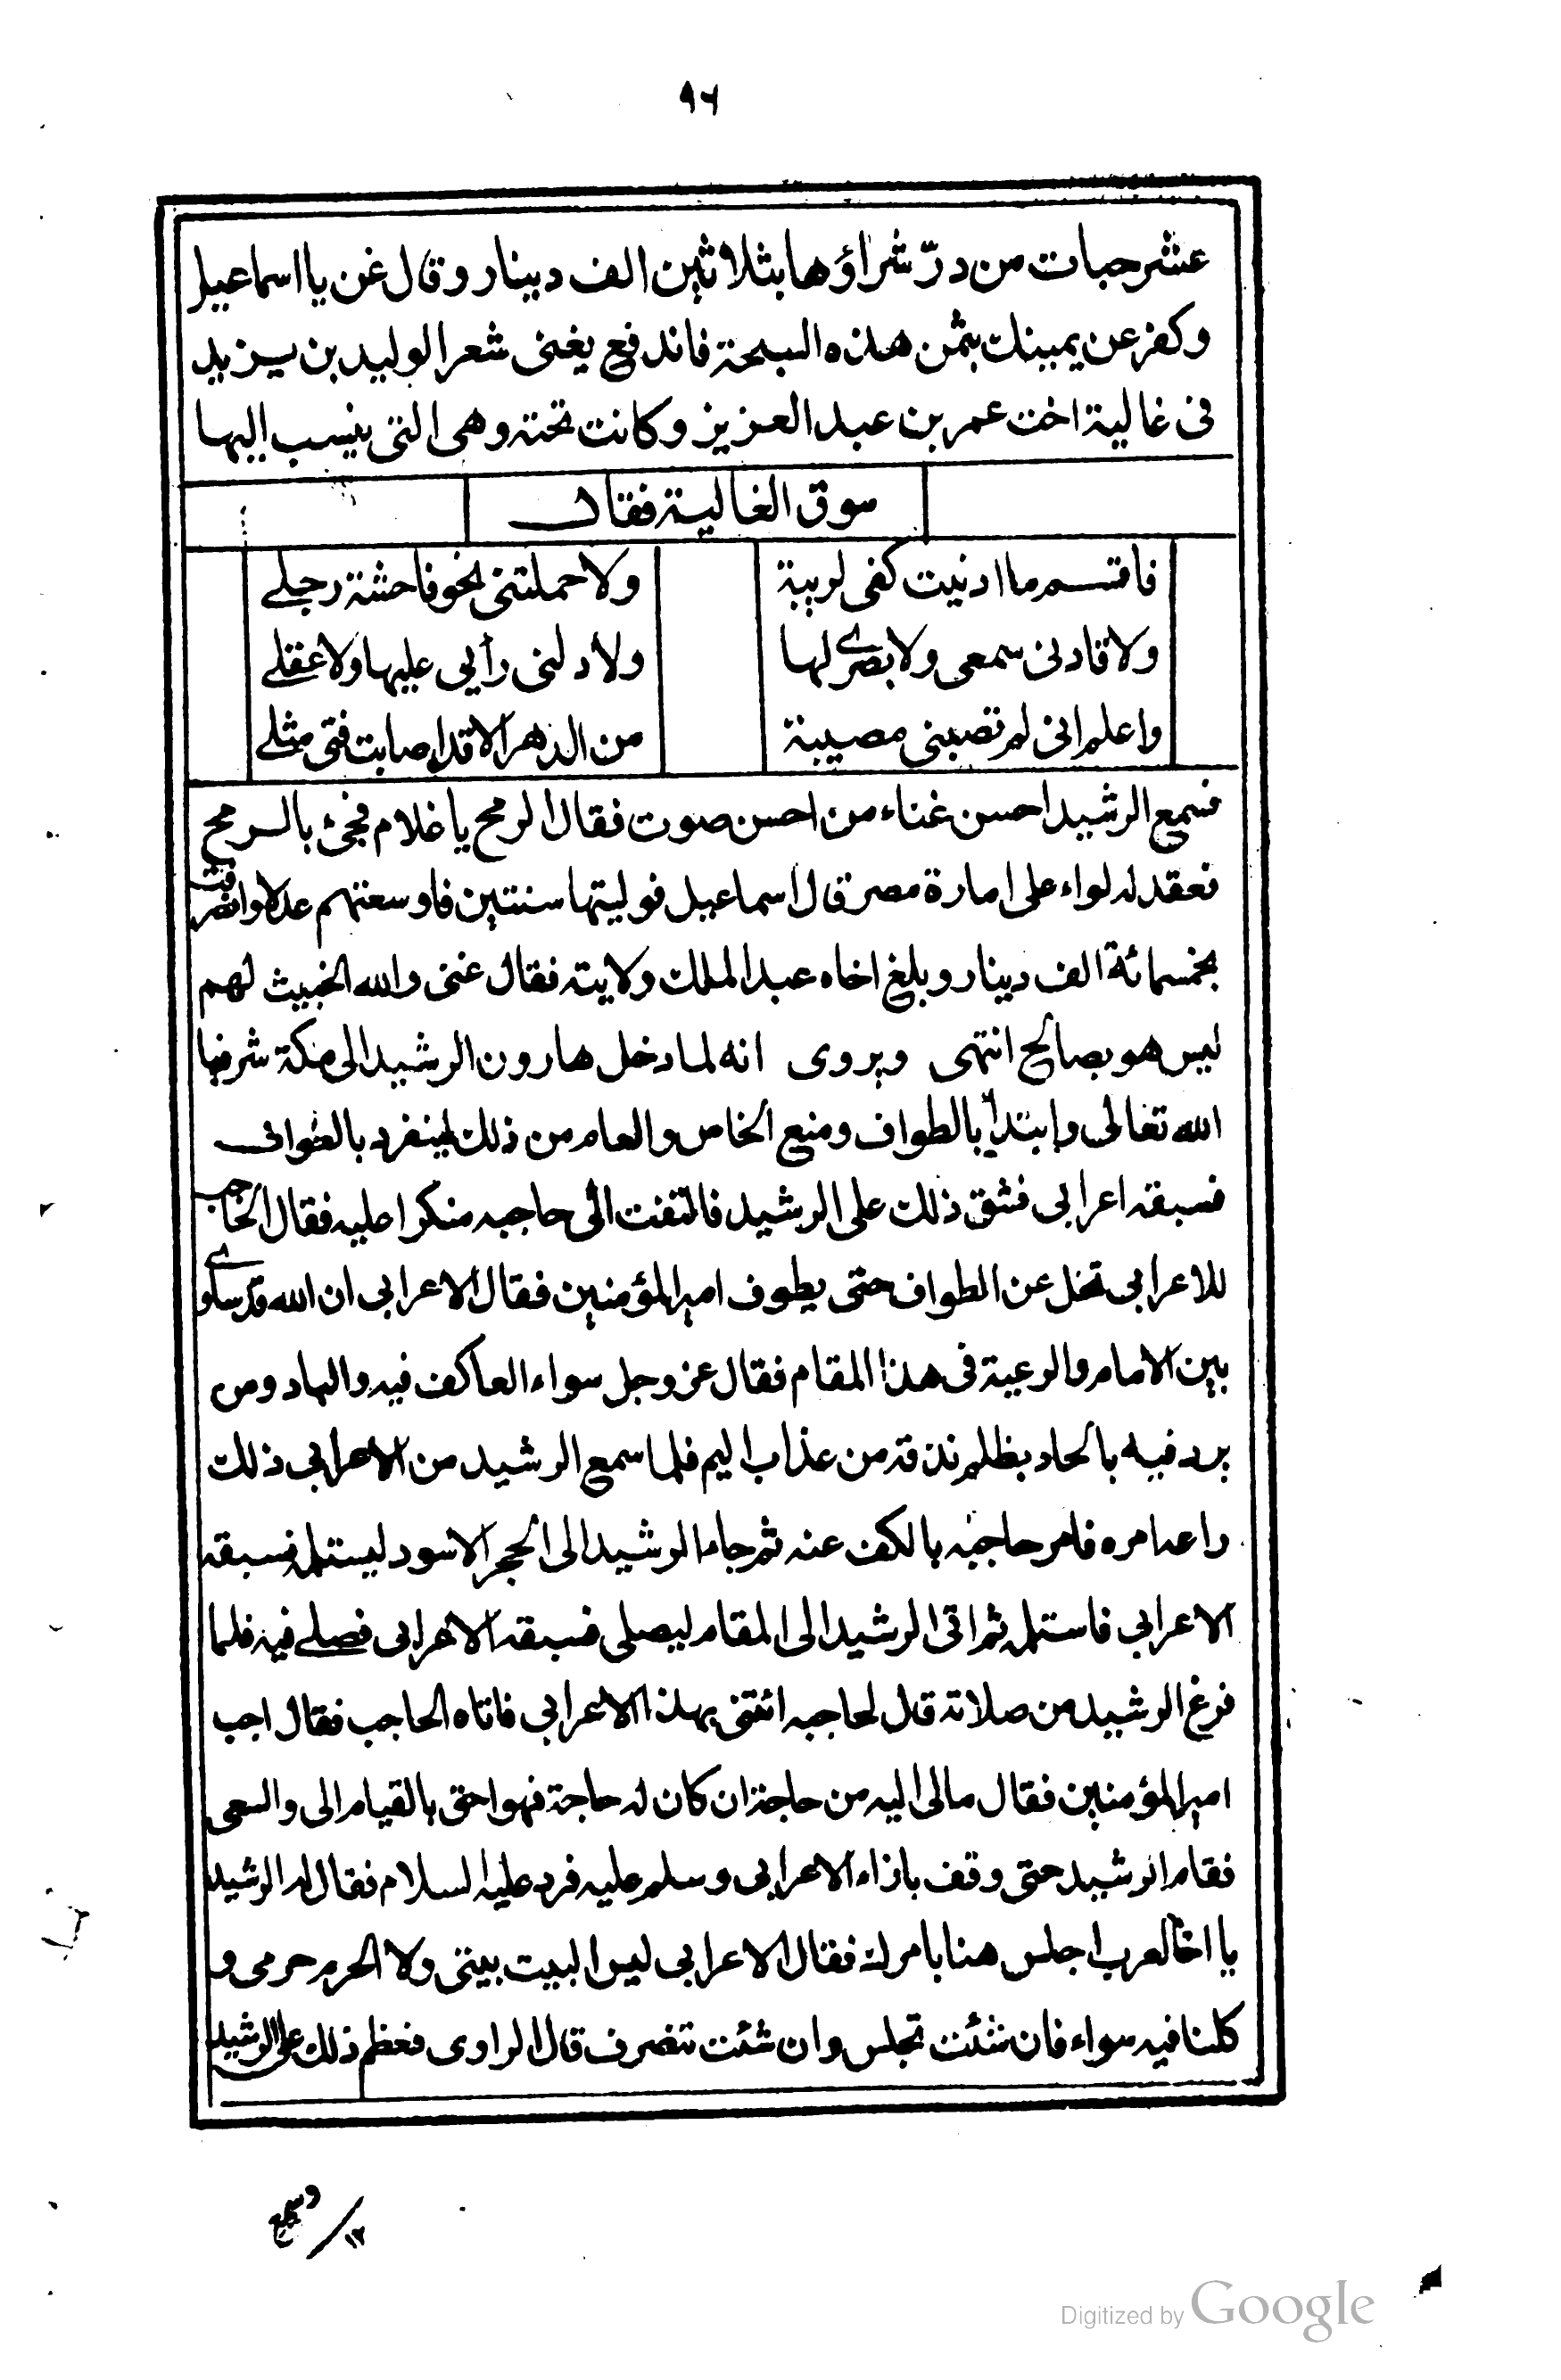 ٩٦
عشر حبات من درّ شراؤها بثلاثين الف دينار وقال غن يا اسماعيل
وكفر عن يمينك بثمن هذه السبحة فاندفع يغنى شعر الوليد بن يزيد
فى غالية اخت عمر بن عبد العزيز وكانت تحته وهى التى ينسب اليها
سوق الغالية فقال
فاقسم ما ادنيت كفى لريبة ولا حملتنى نحو فاحشة رجلے
ولا قادنى سمعى ولا بصرے لها ولا دلنى رأيى عليها ولا عقلے
واعلم انى لم تصبنى مصيبة من الدهر الا قد اصابت فتى مثلے
فسمع الرشيد احسن غناء من احسن صوت فقال الرمح يا غلام فجئ بالرمح
فعقد له لواء على امارة مصر قال اسماعيل فوليتها سنتين فاوسعتهم عدلا وانصرفت
بخمسمائة الف دينار وبلغ اخاه عبد الملك ولايته فقال غنى والله الخبيث لهم
ليس هو بصالح انتهى ويروى انه لما دخل هارون الرشيد الى مكة شرفها
الله تعالى وابتدأ بالطواف ومنع الخاص والعام من ذلك لينفرد بالطواف
فسبقه اعرابى فشق ذلك على الرشيد فالتفت الى حاجبه منكرا عليه فقال الحاجب
للاعرابى تخل عن الطواف حتى يطوف امير المؤمنين فقال الاعرابى ان الله قد ساوے
بين الامام والرعية فى هذا المقام فقال عز وجل سواء العاكف فيه والباد ومن
يرد فيه بالحاد بظلم نذقه من عذاب اليم فلما سمع الرشيد من الاعرابى ذلك
راعه امره فامر حاجبه بالكف عنه ثم جاء الرشيد الى الحجر الاسود ليستلمه فسبقه
الاعرابى فاستلمه ثم اتى الرشيد الى المقام ليصلى فسبقه الاعرابى فصلے فيه فلما
فرغ الرشيد من صلاته قال لحاجبه ائتنى بهذا الاعرابى فاتاه الحاجب فقال اجب
امير المؤمنين فقال مالى اليه من حاجة ان كان له حاجة فهو احق بالقيام الى والسعى
فقام الرشيد حتى وقف بازاء الاعرابى وسلم عليه فرد عليه السلام فقال له الرشيد
يا اخا العرب اجلس هنا بامرك فقال الاعرابى ليس البيت بيتى ولا الحرم حرمى و
كلنا فيه سواء فان شئت تجلس وان شئت تنصرف قال الراوى فعظم ذلك على الرشيد
وسمع
١٢
Digitized by Google